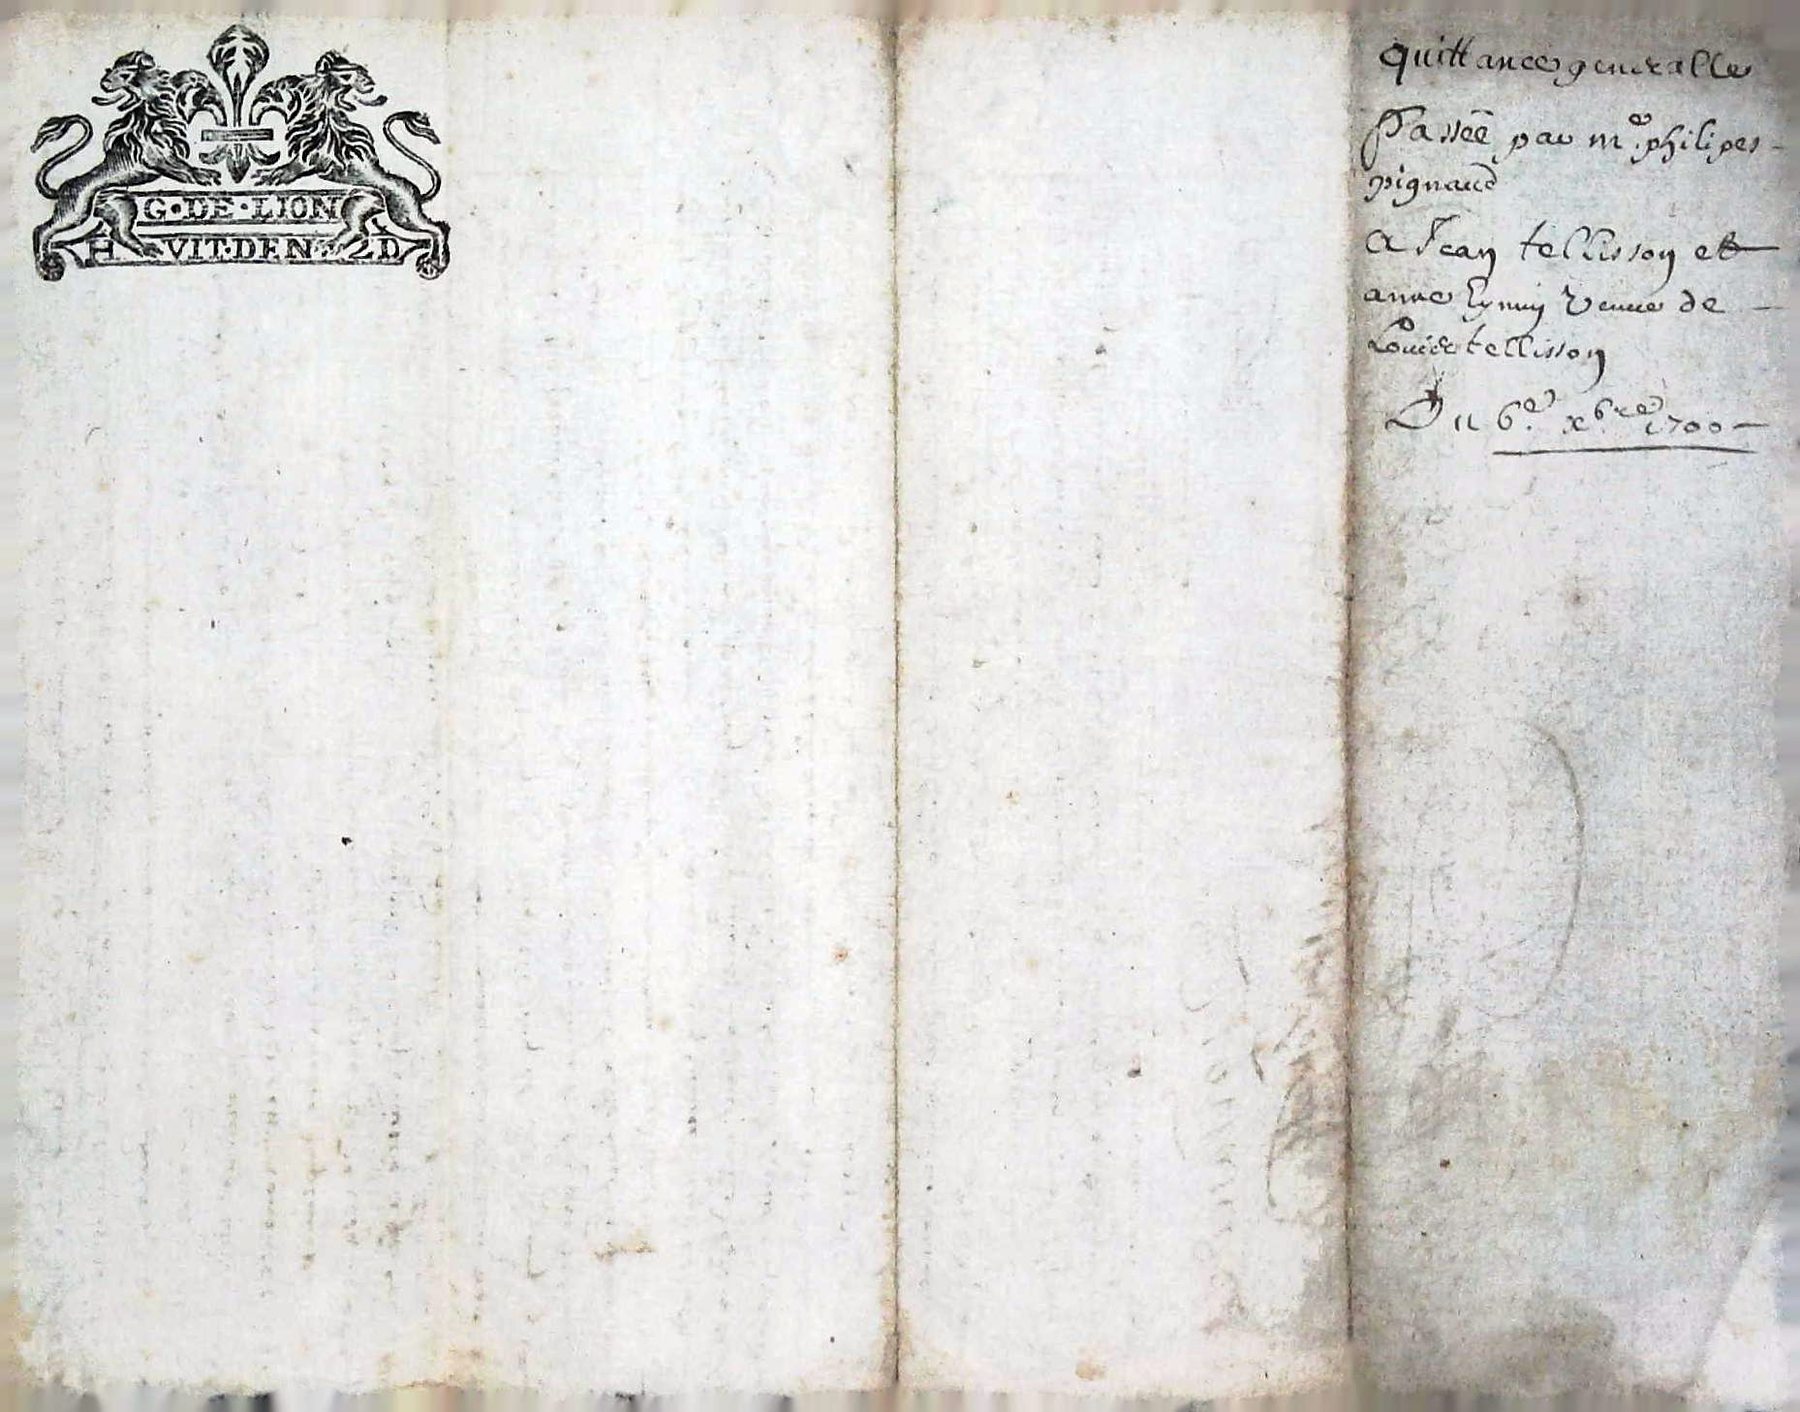 G·DE·LION
H VIT·DEN 2D
quittance generalle
Passée par me philipes
pignaud
a Jean tellisson et
anne veuue de
Louis tellisson
Du 6e xbre 1700